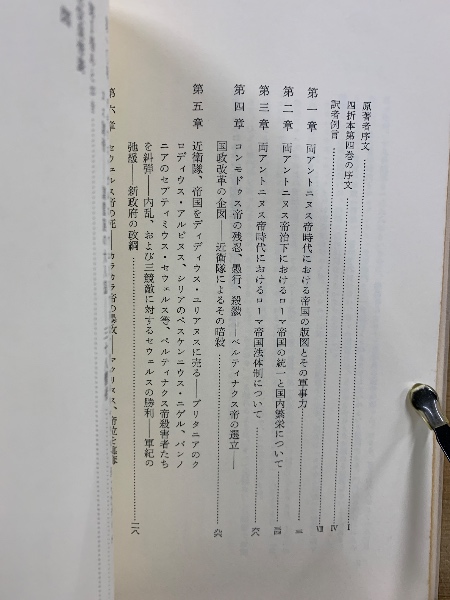 原著者序文 I
四折本第四巻の序文 IV
訳者例言 VII
第一章 両アントニヌス帝時代における帝国の版図とその軍事力 三
第二章 両アントニヌス帝治下におけるローマ帝国の統一と国内繁栄について
第三章 両アントニヌス帝時代におけるローマ帝国法体制について
第四章 コンモドゥス帝の残忍、愚行、殺戮――ペルティナクス帝の選立――
国政改革の企図――近衛隊によるその暗殺
第五章 近衛隊、帝国をディディウス・ユリアヌスに売る――ブリタニアのク
ロディウス・アルビヌス、シリアのペスケンニウス・ニゲル、パンノ
ニアのセプティミウス・セウェルス等、ペルティナクス帝殺害者たち
を糾弾――内乱、および三競敵に対するセウェルスの勝利――軍紀の
弛緩――新政府の政綱
第六章 セウェルス帝の死 カラカラ帝の